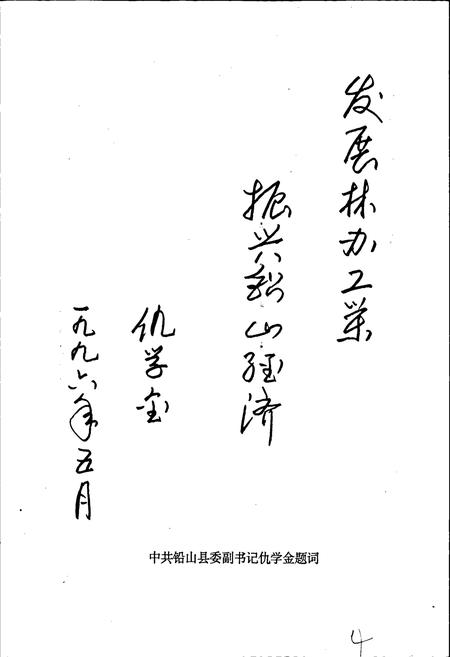 发展林办工業
振兴铅山经济
仇学金
一九九六年五月
中共铅山县委副书记仇学金题词
4